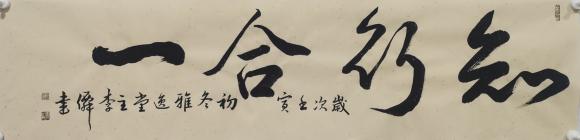 知行合一
歲次壬寅初冬雅逸堂主李僻書